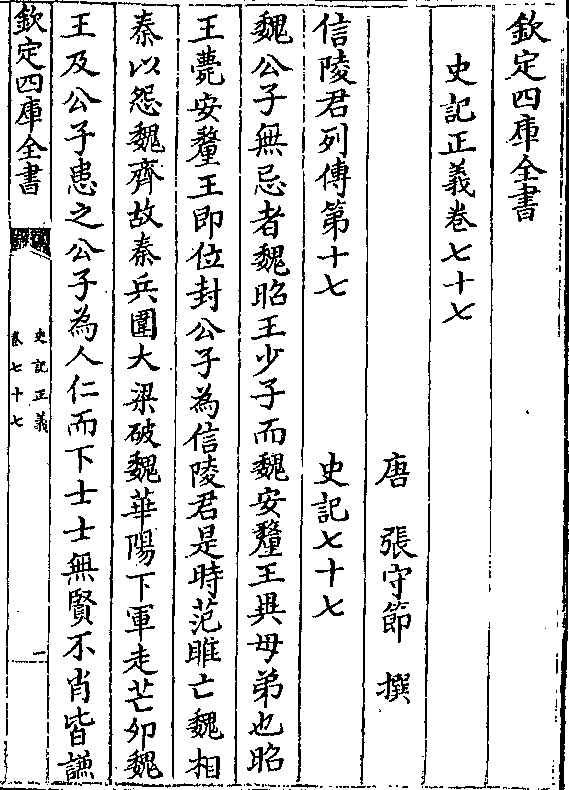 欽定四庫全書
史記正義卷七十七
唐 張守節 撰
信陵君列傳第十七 史記七十七
魏公子無忌者魏昭王少子而魏安釐王異母弟也昭
王薨安釐王即位封公子為信陵君是時范雎亡魏相
秦以怨魏齊故秦兵圍大梁破魏華陽下軍走芒卯魏
王及公子患之公子為人仁而下士士無賢不肖皆謙
欽定四庫全書
史記正義
卷七十七
一